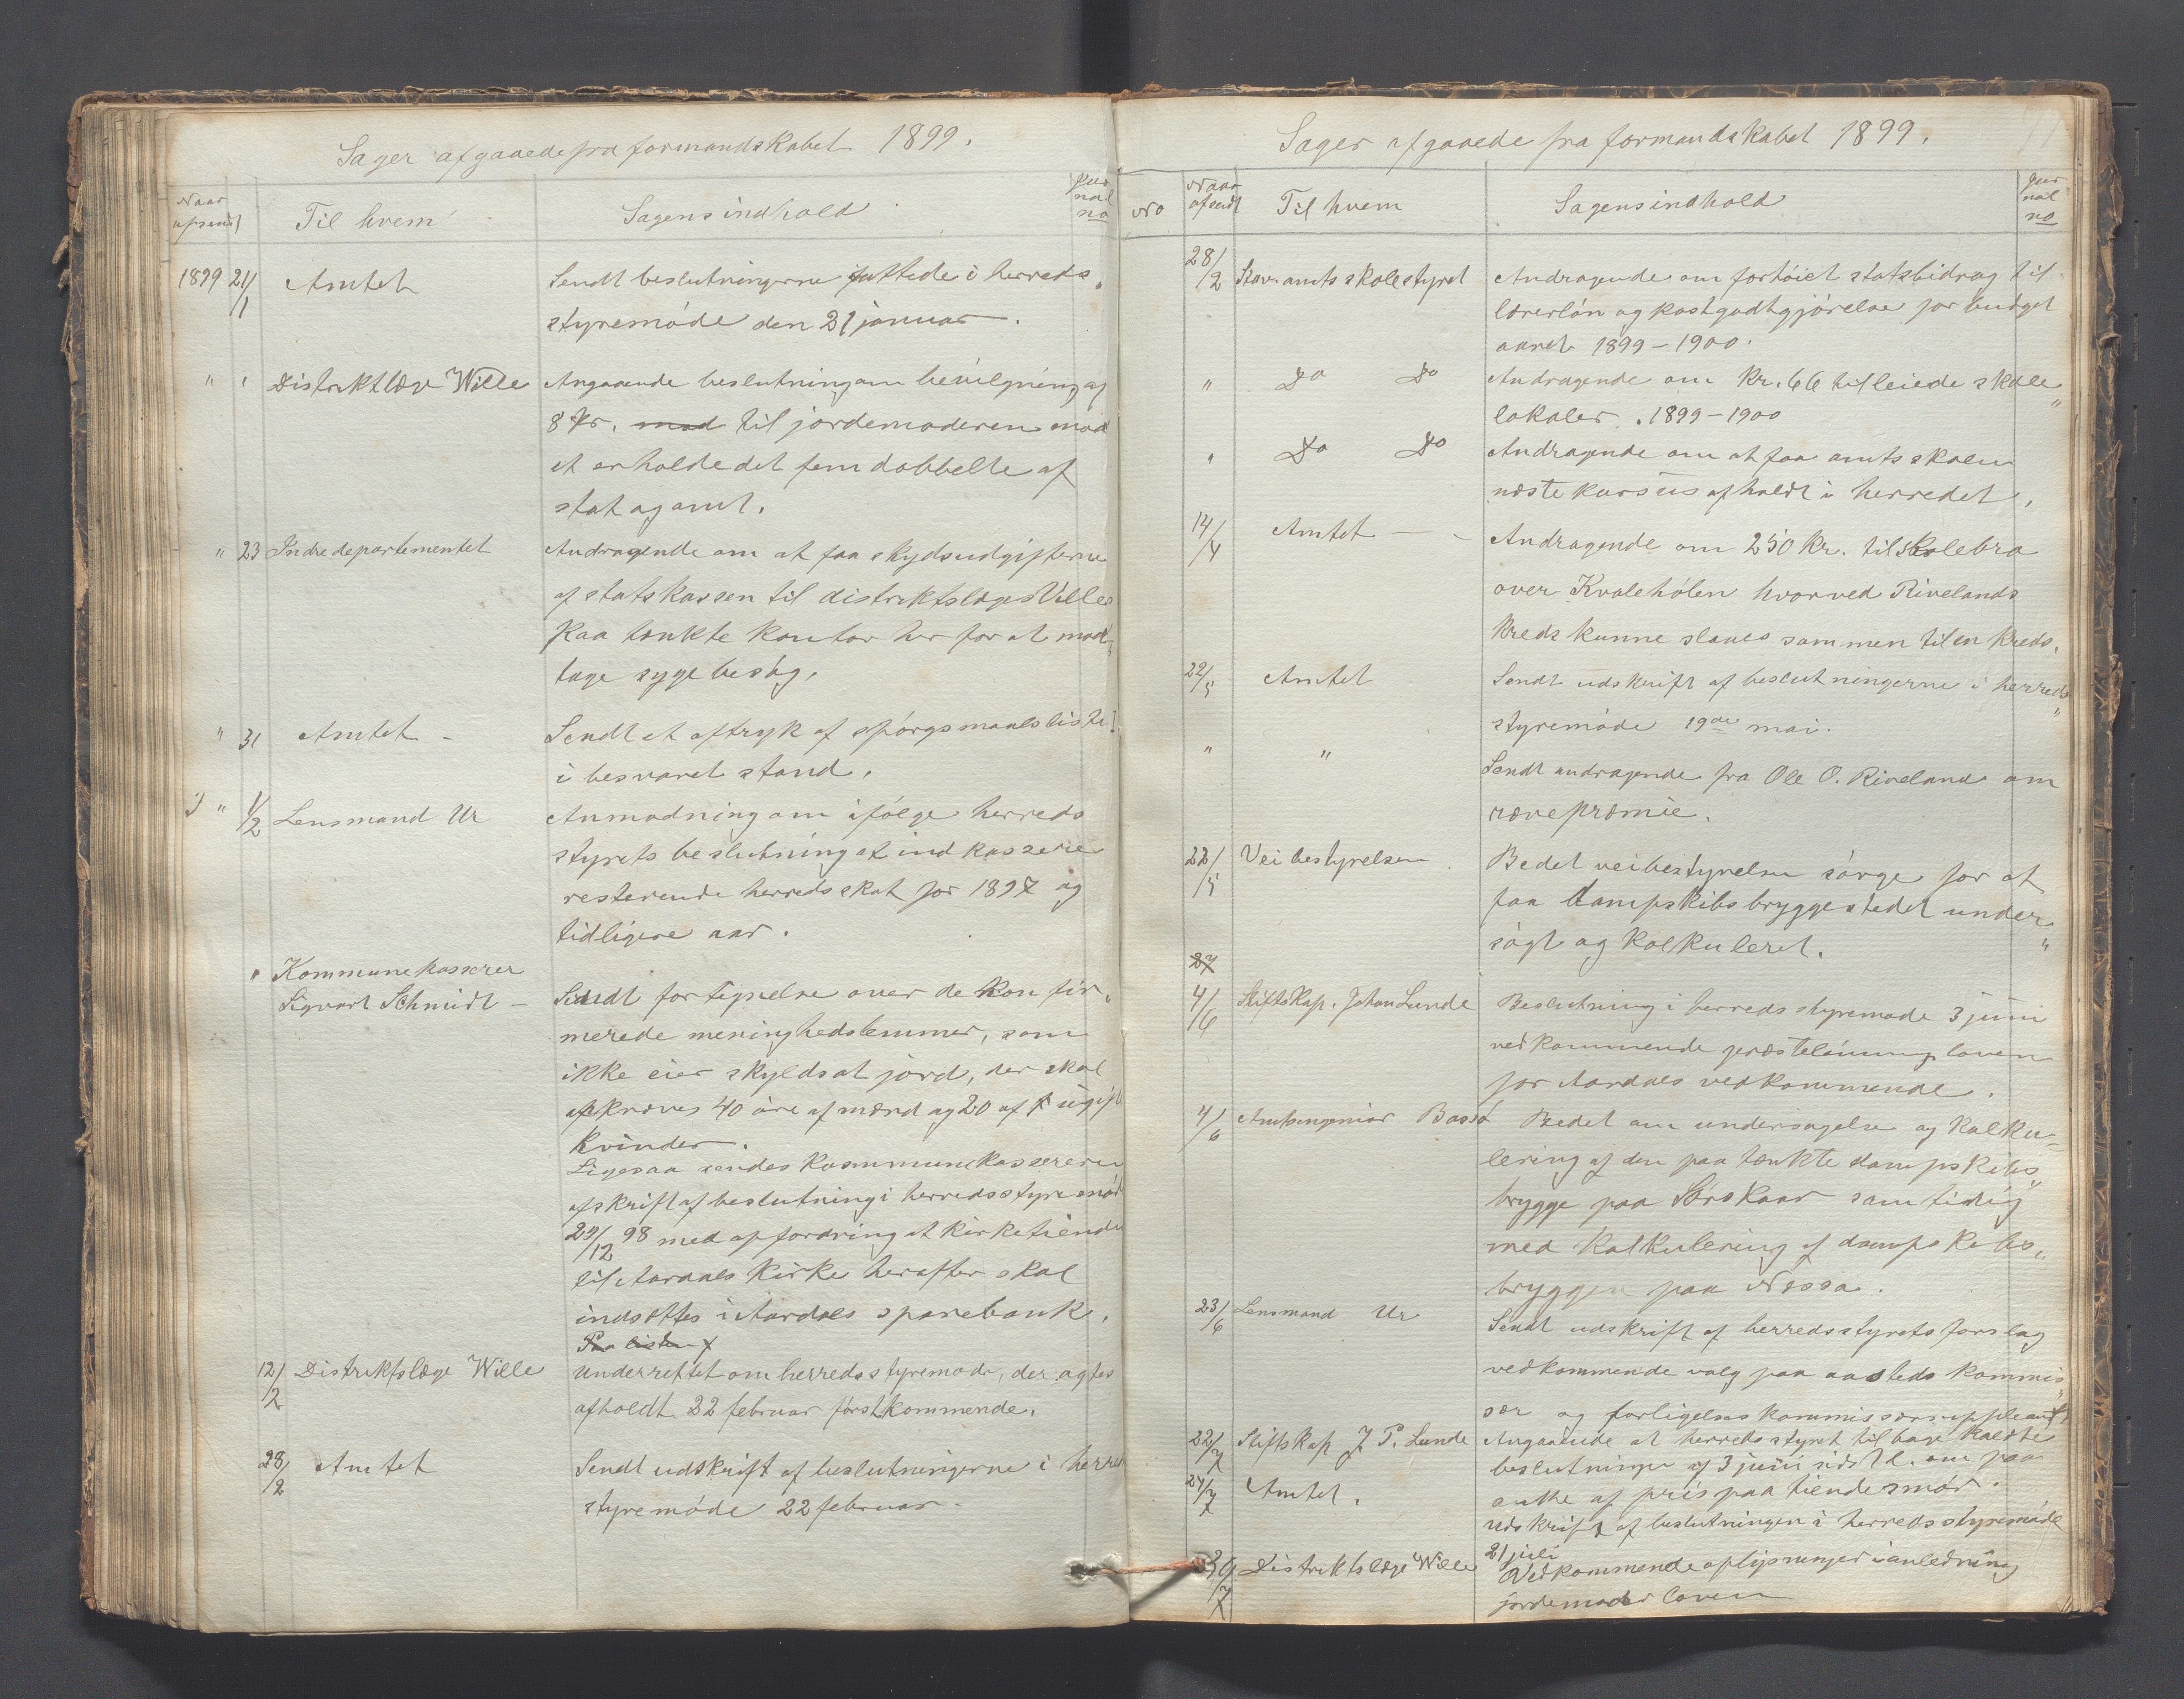 Sager afgaaede fra formandskabet 1899.
Naar afsendt
Til hvem
Sagens indhold
Jurnal no
1899 21/1 Amtet
Sendt beslutningerne fattede i herreds
styremøde den 21 januar.
" " Distriktlæge Wille
Angaaende beslutning om bevilgning af
8 Kr. mod til jordemoderen mod
at erholde det femdobbelte af
stat og amt.
" 23 Indredepartementet
Andragende om at faa skydsudgifterne
af statskassen til distriktslæge Willes
paa tænkte kontor her for at mod-
tage sygebesøg.
" 31 Amtet -
Sendt et aftryk af spørgsmaalsliste
i besvaret stand.
" 1/2 Lensmand Ur
Anmodning om ifølge herreds
styrets beslutning at indkassere
resterende herredsskat for 1897 og
tidligere aar.
" Kommunekasserer
Sigvart Schmidt -
Sendt fortegnelse over de konfir-
merede menighedslemmer, som
ikke eier skyldsat jord, der skal
afkræves 40 øre af mænd og 20 af ugift
kvinder.
Ligesaa sendes kommunekassereren
afskrift af beslutning i herredsstyremøde
29/12 98 med opfordring at kirketiende
til Aardals kirke herafter skal
indsættes i Aardals sparebank.
Paa listen f
12/2 Distriktslæge Wille
Underrettet om herredsstyremøde, der agtes
afholdt 22 februar førstkommende.
23/2 Amtet
Sendt udskrift af beslutningerne i herred
styremøde 22 februar.
Sager afgaaede fra formandskabet 1899.
No
Naar afsendt
Til hvem
Sagens indhold
Jurnal no
28/2 Stav. amts skolestyret
Andragende om forhøiet statsbidrag til
lærerløn og kostgodtgjørelse for budget
aaret 1899-1900.
" Do Do
Andragende om Kr. 66 til leiede skole
lokaler. 1899-1900
" Do Do
Andragende om at faa amtsskolen
næste kursus afholdt i herredet.
14/4 Amtet -
Andragende om 250 Kr. til skolebro
over Kvalehølen hvorved Rivelands
kreds kunne slaaes sammen til en kreds.
22/5 Amtet
Sendt udskrift af beslutningerne i herreds
styremøde 19de mai.
" "
Sendt andragende fra Ole O. Riveland om
rævepræmie.
22/5 Veibestyrelsen
Bedet veibestyrelsen sørge for at
faa dampskibsbryggestedet under
søgt og kalkuleret.
27
4/6 Stiftskap. Johan Lunde
Beslutning i herredsstyremøde 3 juni
vedkommende præstelønningsloven
for Aardals vedkommende.
4/6 Amtsingeniør Bassø
Bedet om undersøgelse og kalku-
lering af den paatænkte dampskibs
brygge paa Sørskaar samtidig
med kalkulering af dampskibs
bryggen paa Nessa.
23/6 Lensmand Ur
Sendt udskrift af herredsstyrets forslag
vedkommende valg paa aasteds kommis
sær og forligelseskommissærsuppleant
22/7 Stiftskap J P. Lunde
Angaaende at herredsstyret tilbagekaldte
beslutningen af 3 juni sidstl. om paa
anke af pris paa tiendesmør.
24/7 Amtet.
Udskrift af beslutningen i herredsstyremøde
21 juli
30/7 Distriktslæge Wille
Vedkommende oplysninger i anledning
jordemoderloven